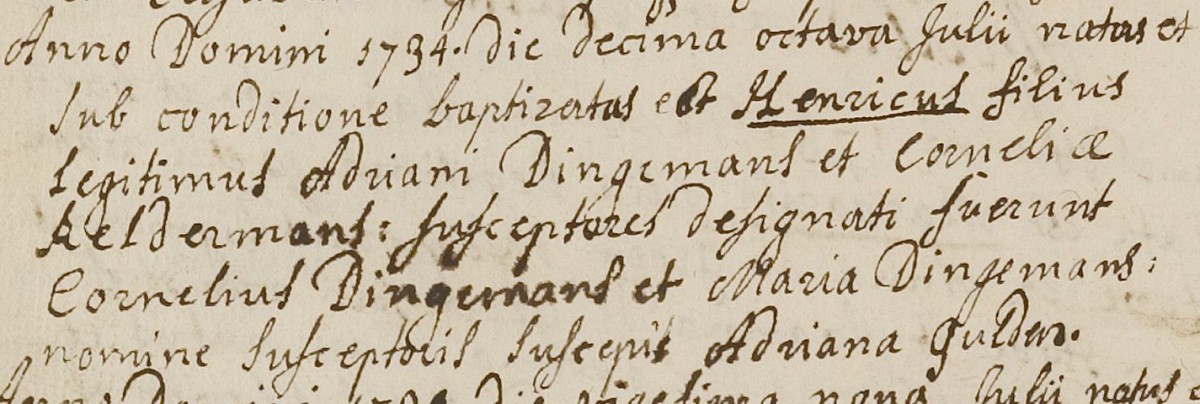 Anno Domini 1734. die decima octava Julii natus et
sub conditione baptizatus est Henricus filius
legitimus Adriani Dingemans et Corneliæ
Keldermans: susceptores designati fuerunt
Cornelius Dingemans et Maria Dingemans:
nomine susceptoris suscepit Adriana Gulden.
die vigesima nona Julii natus